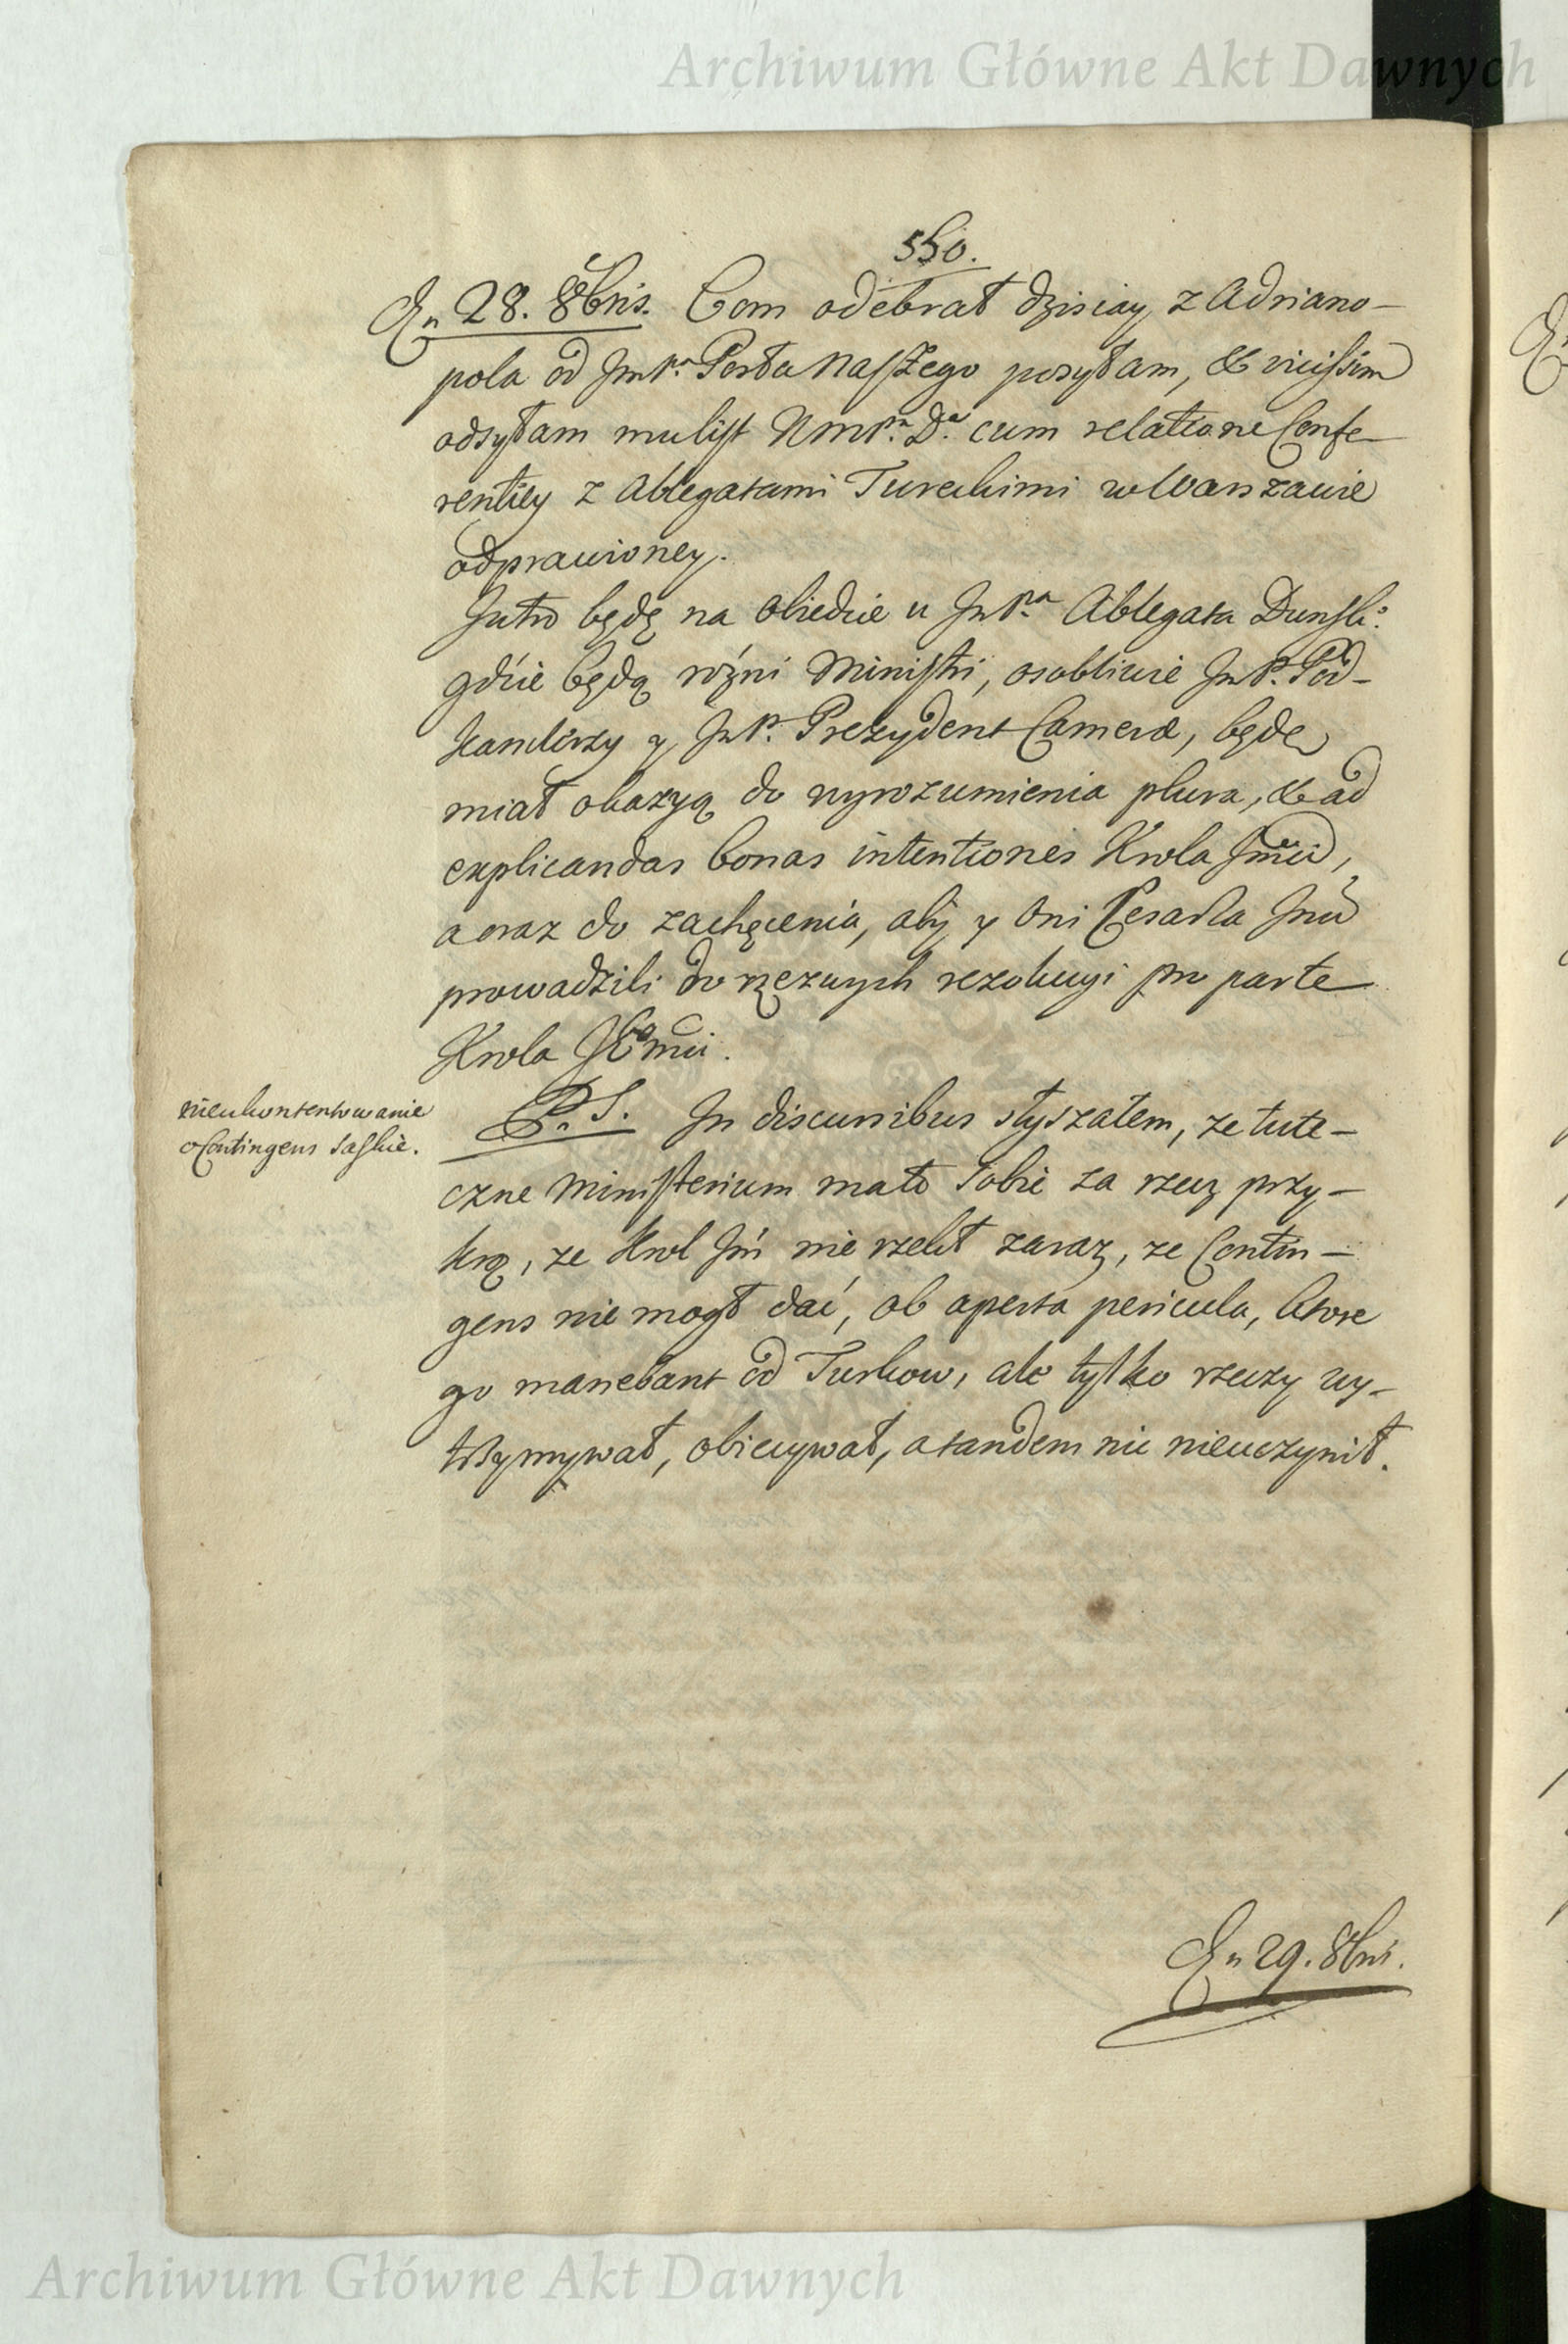 Archiwum Główne Akt Dawnych
550.
En 28. 8bris. Com odebrał dzisiay z Adriano-
pola od JmP.ᵃ Posła Naszego posyłam, & vicissim
odsyłam mu list WmP.ᵃ D.ᵃ cum relatione Confe-
rentiey z Ablegatami Tureckimi w Warszawie
odprawioney.
Jutro będę na obiedzie u JmP.ᵃ Ablegata Dunsk:
gdzie będą rożni Ministri, osobliwie JmP. Pod-
kanclerzy y JmP. Prezydent Cameræ, będę
miał okazyą do wyrozumienia plura, & ad
explicandas bonas intentiones Krola Jmci,
a oraz do zachęcenia, aby y Oni Cesarza Jmci
prowadzili do rzeznych rezolucyi pro parte
Krola JEᵒmci.
nieukontentowanie
o Contingens Saskie.
P.S. In discursibus słyszałem, ze tute-
czne Ministerium mało sobie za rzecz przy-
krą, ze Krol Jmć nie rzekł zaraz, ze Contin-
gens nie mogł dać, ob aperta pericula, ktore
go manebant od Turkow, ale tylko rzeczy wy-
trzymywał, obiecywał, a tandem nic nieuczynił.
En 29. 8bris.
Archiwum Główne Akt Dawnych